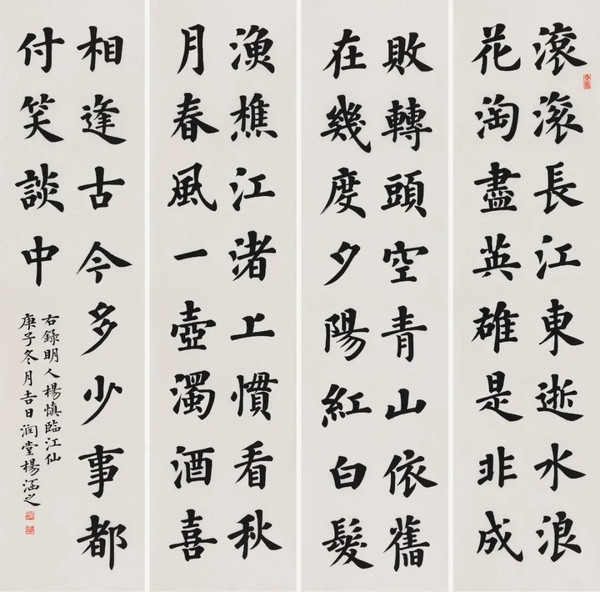 滾滾長江東逝水浪
花淘盡英雄是非成
敗轉頭空青山依舊
在幾度夕陽紅白髮
漁樵江渚上慣看秋
月春風一壺濁酒喜
相逢古今多少事都
付笑談中
右錄明人楊慎臨江仙
庚子冬月吉日润堂楊涵之